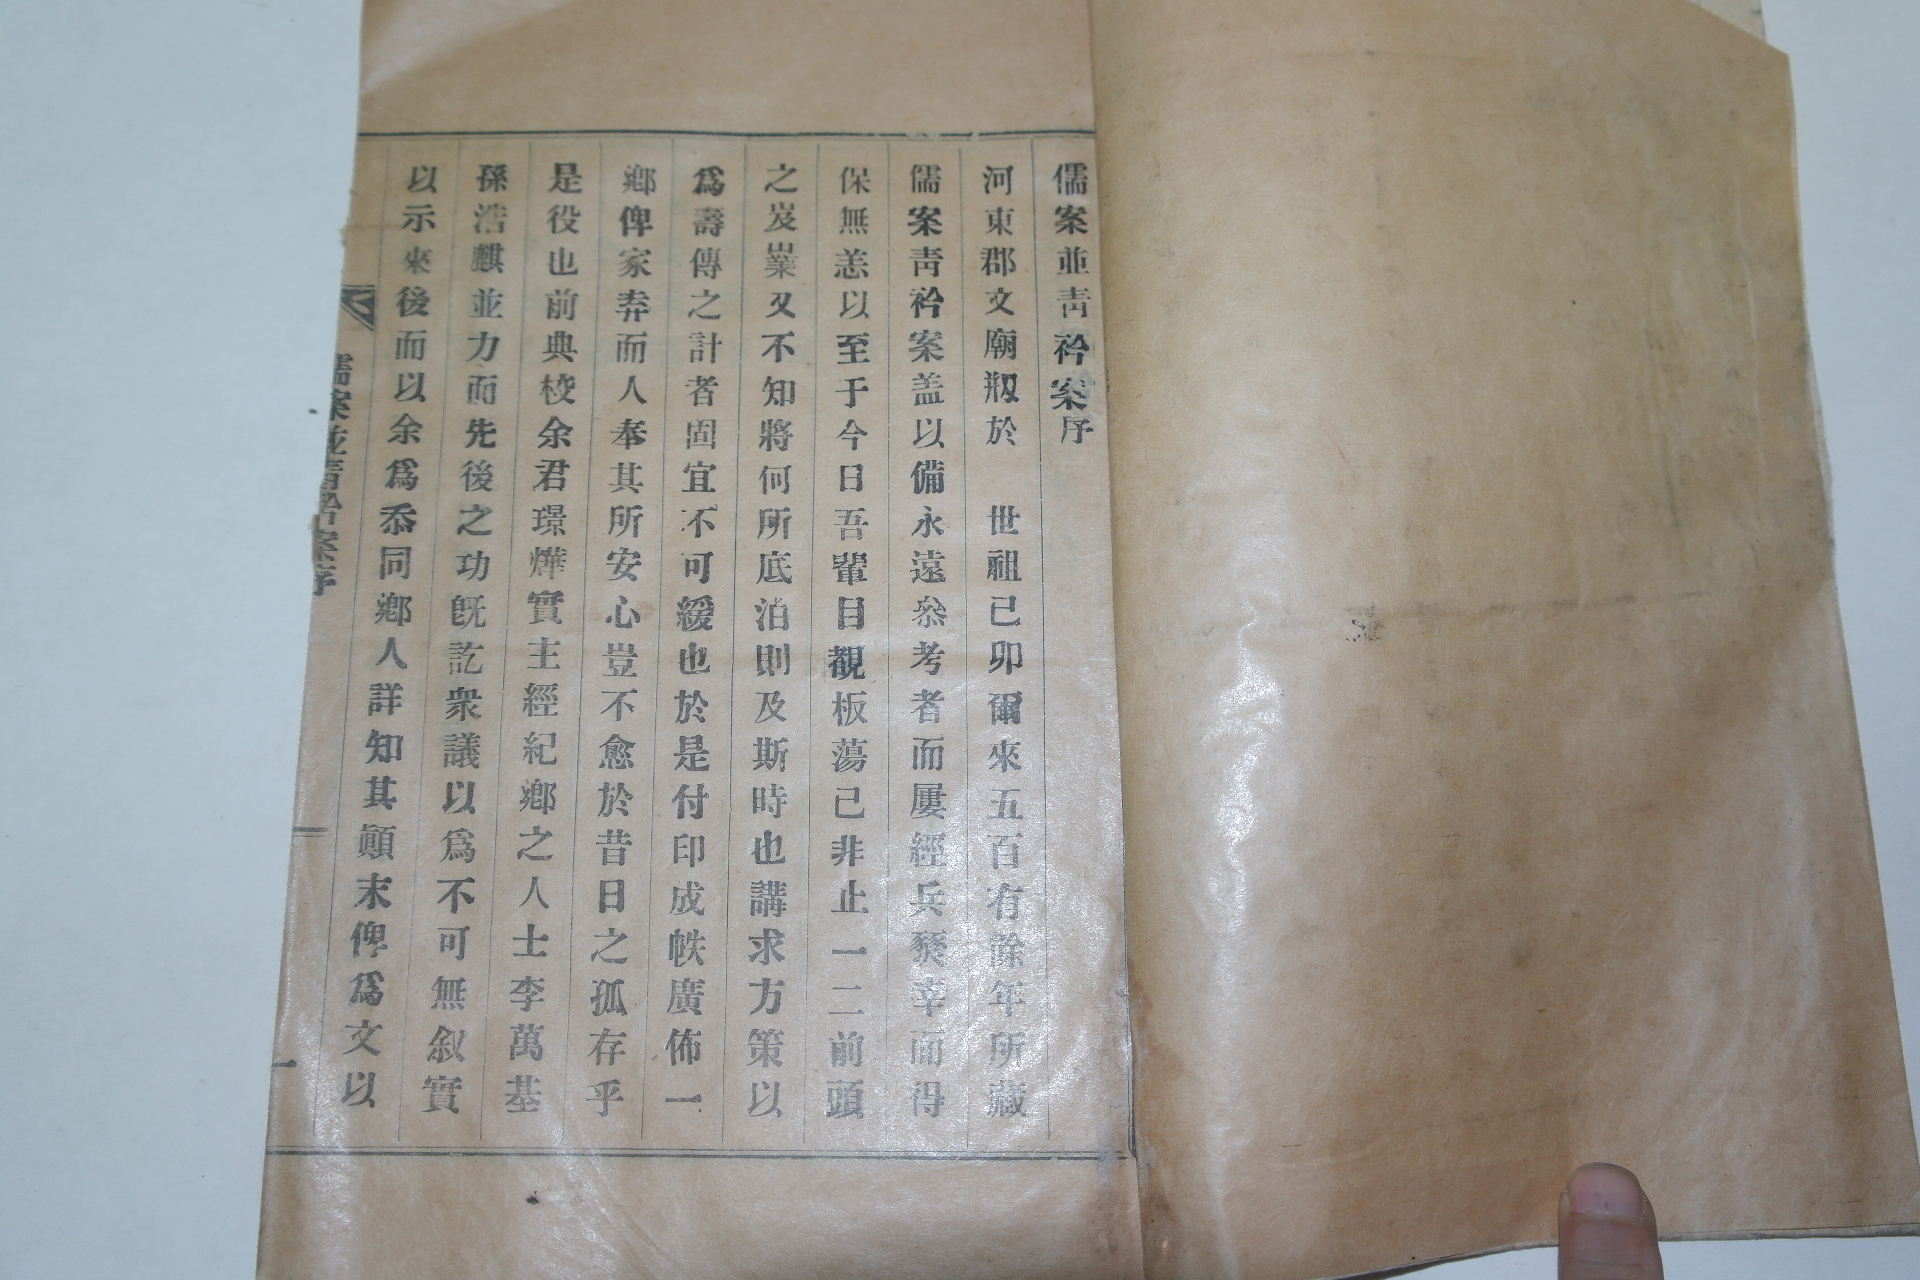 儒案並靑衿案序
河東郡文廟刱於 世祖己卯爾來五百有餘年所藏
儒案靑衿案盖以備永遠叅考者而屢經兵燹幸而得
保無恙以至于今日吾輩日觀板蕩已非止一二前頭
之岌嶪又不知將何所底泊則及斯時也講求方策以
爲壽傳之計者固宜不可緩也於是付印成帙廣佈一
鄕俾家弆而人奉其所安心豈不愈於昔日之孤存乎
是役也前典校余君璟燁實主經紀鄕之人士李萬基
孫浩麒並力而先後之功旣訖衆議以爲不可無叙實
以示來後而以余爲忝同鄕人詳知其顚末俾爲文以
儒案並靑衿案序
一